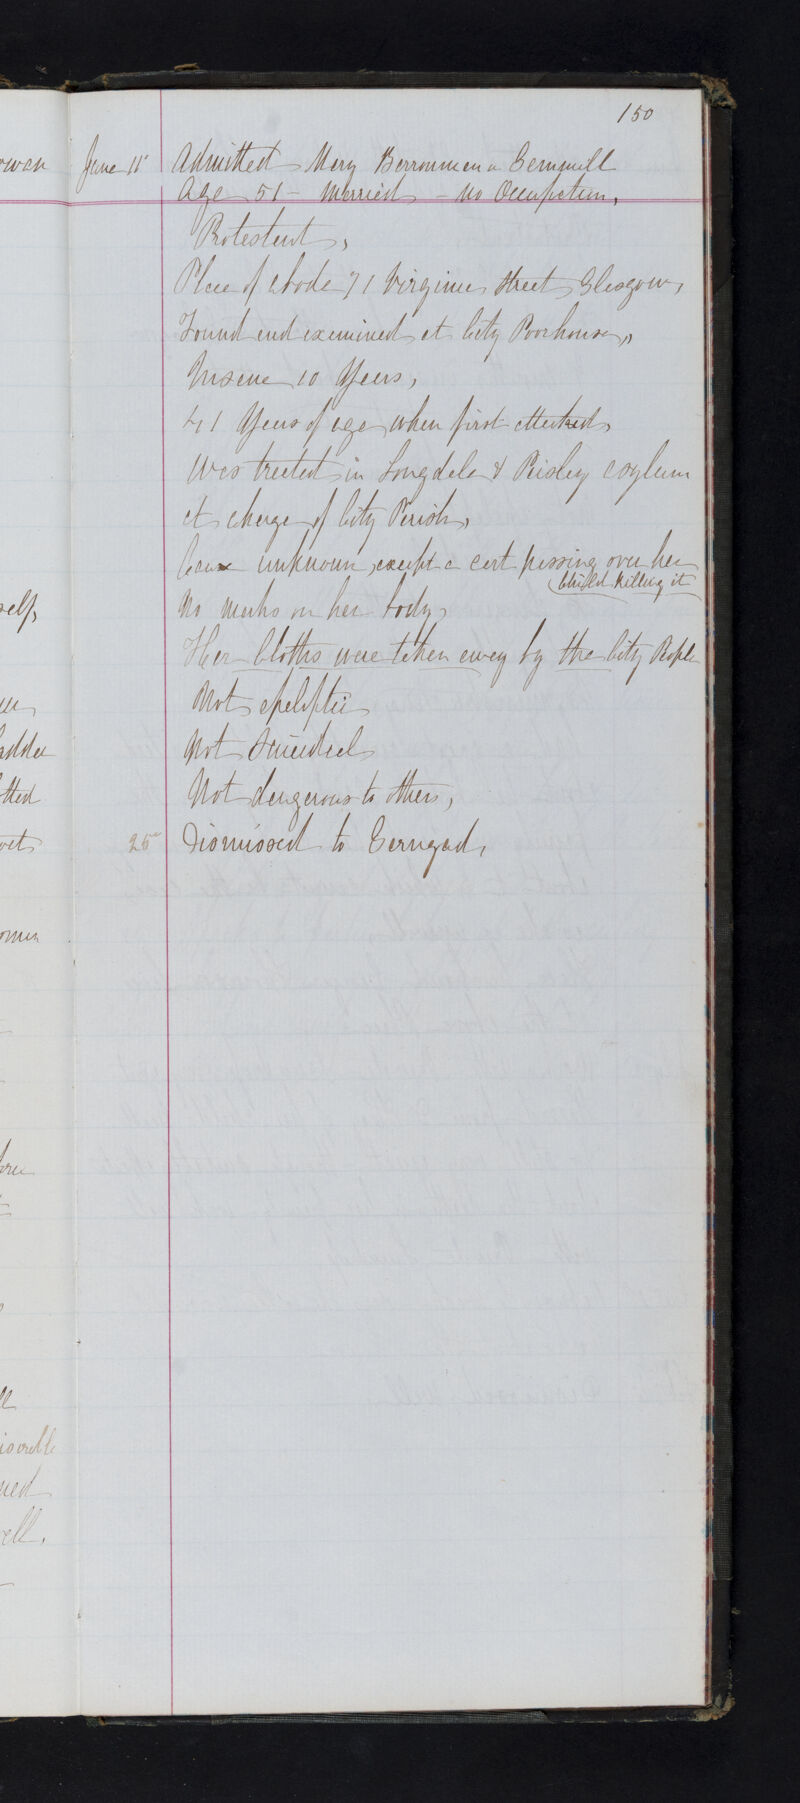 150
June 11th Admitted Mary Berronman or Gemmill
Age 51 - Married - No Occupation,
Protestant,
Place of abode 71 Virginia Street Glasgow,
Found and examined at City Poorhouse,
Insane 10 Years,
41 Years of age when first attacked,
Was treated in Longdale & Paisley asylum
at charge of City Parish,
Cause unknown, except a cart passing over her
child killing it
No marks on her body,
Her Cloths were taken away by the City People
Not epeliptic
Not Suicidal
Not dangerous to others,
25th Dismissed to Garngad,